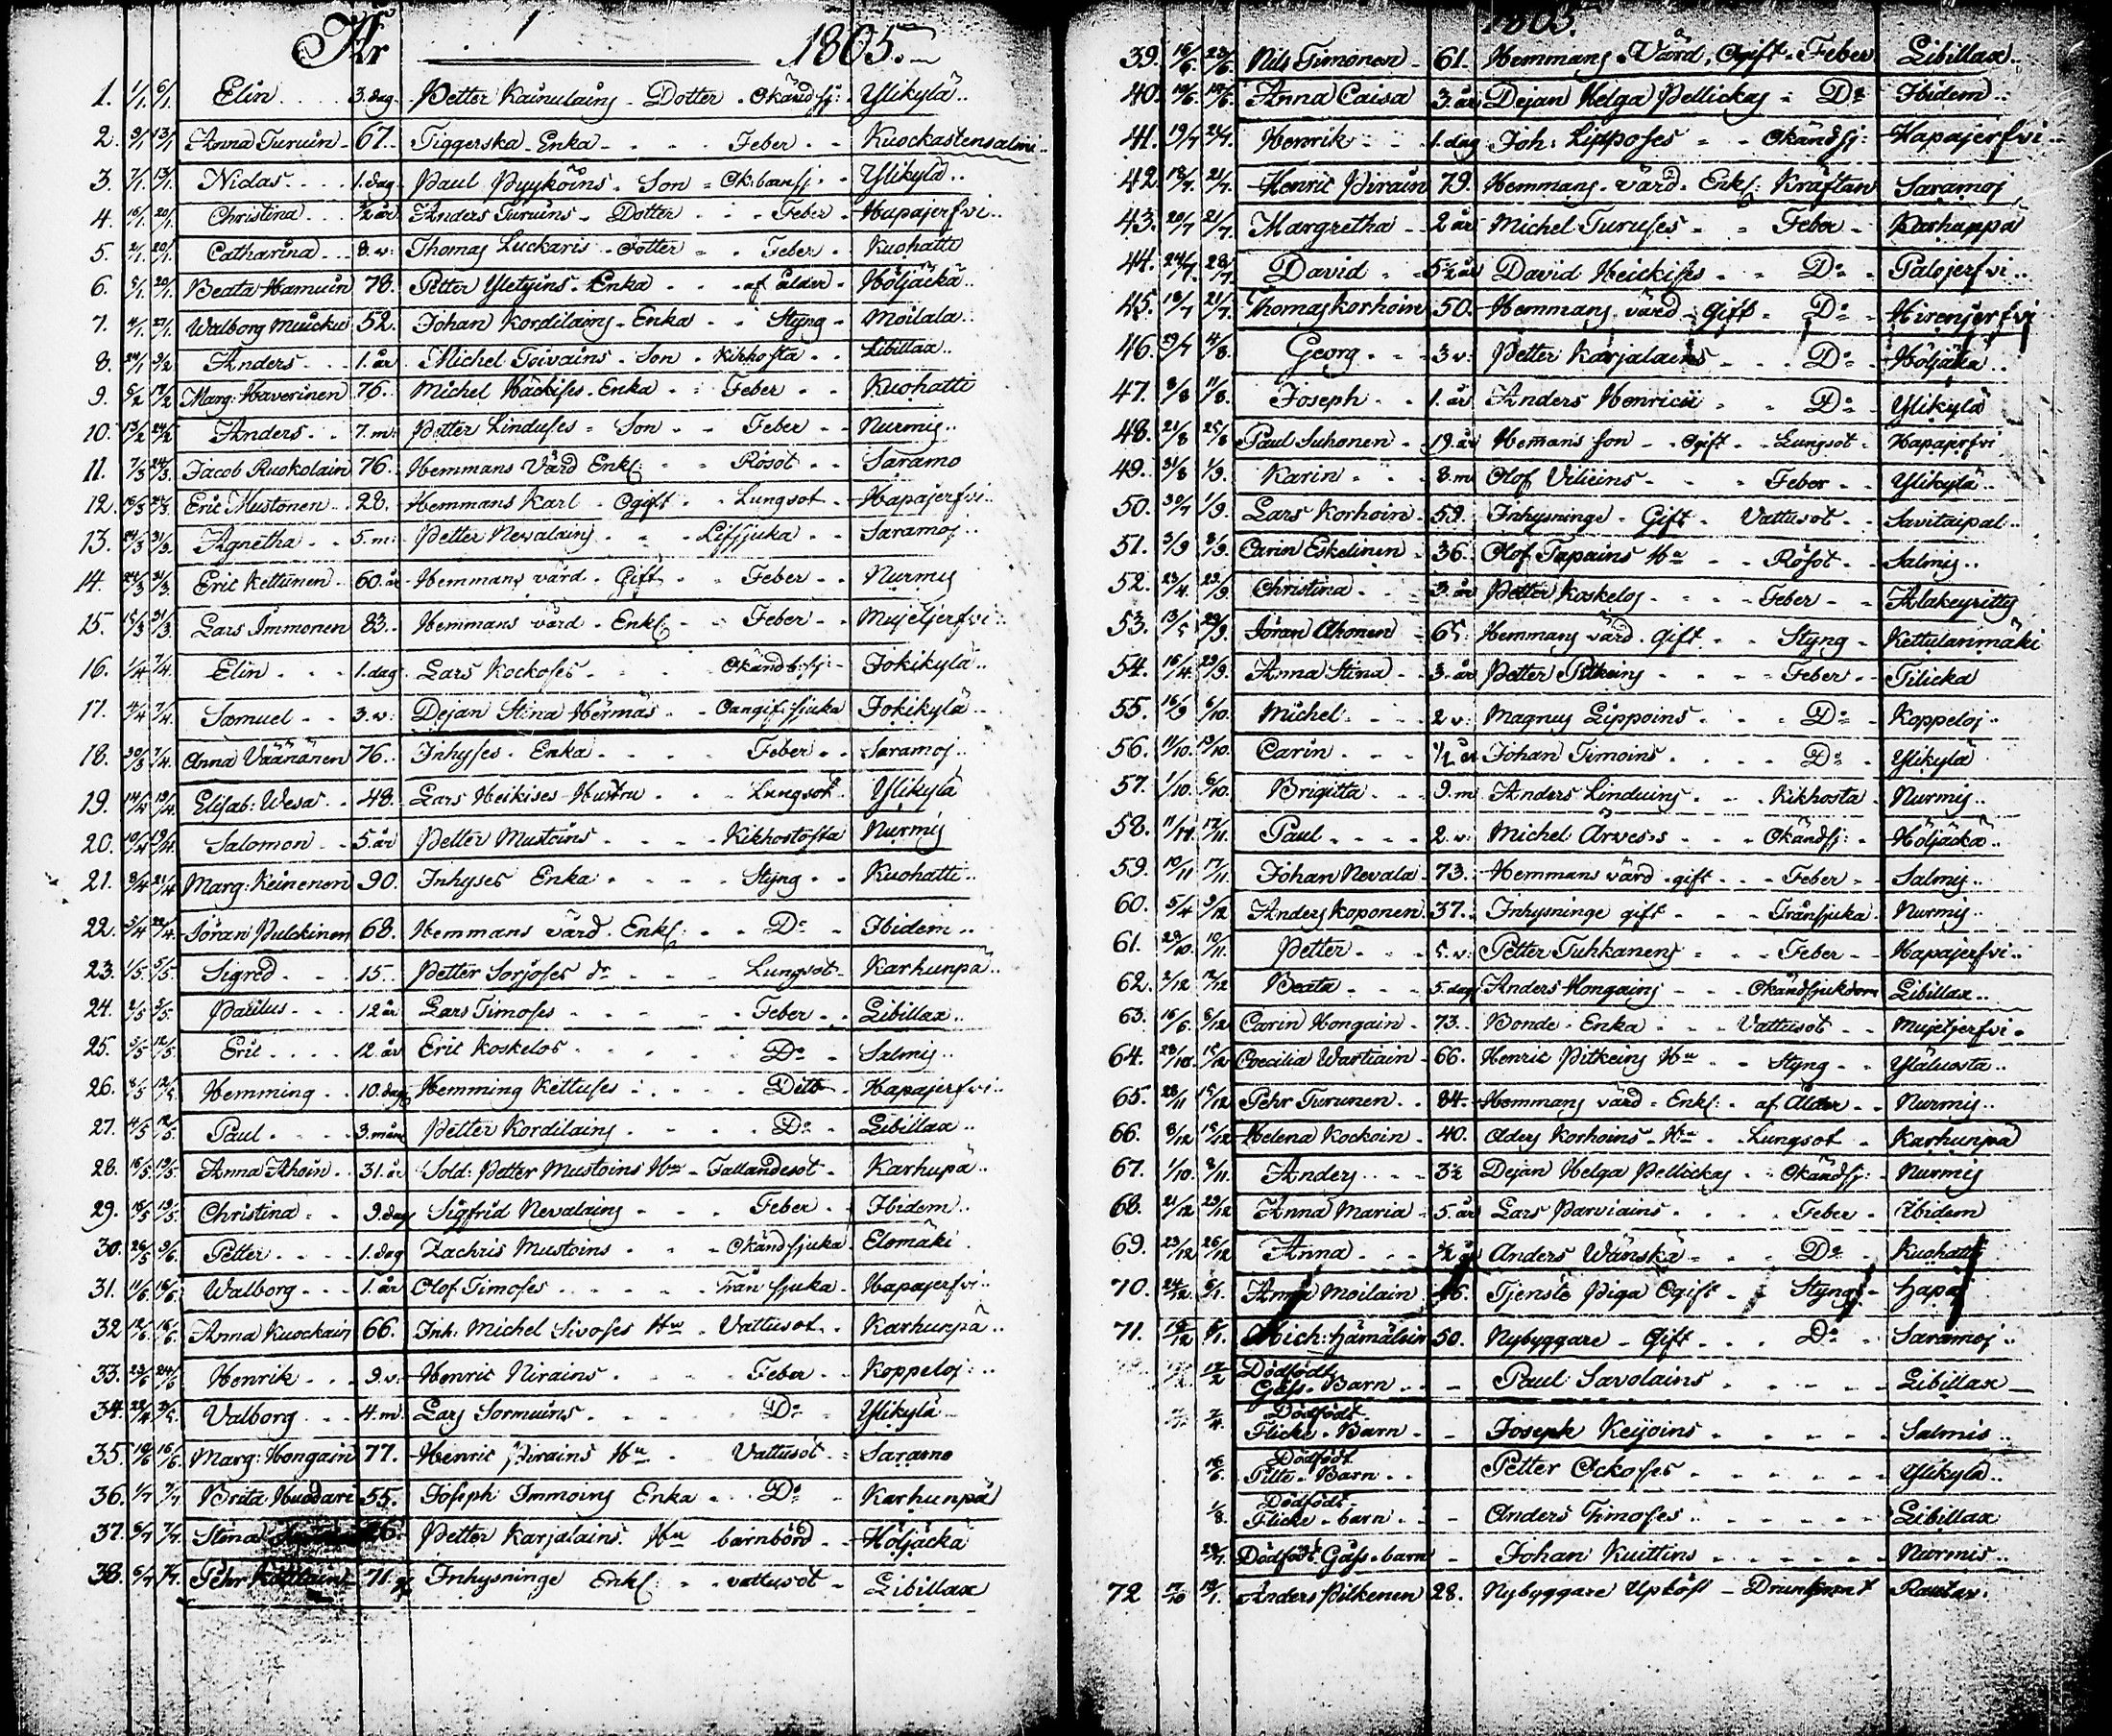 År 1 1805.
1. 1/1. 6/1. Elin 3. dag. Petter Kainulains Dotter Okänd sj: Ylikylä
2. 9/1 13/1 Anna Turuin 67. Tiggerska Enka Feber Kuockastensalmi
3. 7/1. 13/1. Nidas 1. dag. Paul Pyyköins Son Ok: barnsj. Ylikylä
4. 16/1. 20/1. Christina ½ år Anders Turuins Dotter Feber Hapajerfvi
5. 2/1. 20/1. Catharina 8. v: Thomas Luckaris Dotter Feber Kuohatti
6. 5/1. 20/1. Beata Hamuin 78. Petter Yletyins Enka af ålder Höljäckä
7. 4/1. 27/1. Walborg Muicku 52. Johan Kordilains Enka Styng Moilala
8. 24/1 3/2 Anders 1. år Michel Toivains Son Kikhosta Libillax
9. 5/2 17/2 Marg: Haverinen 76. Michel Häckises Enka Feber Kuohatti
10. 13/2 24/2 Anders 7. m: Petter Linduses Son Feber Nurmis
11. 7/3 24/3. Jacob Ruokolain 76. Hemmans Värd Enkl: Rösot Saramo
12. 16/3 24/3. Eric Mustonen 28. Hemmans Karl Ogift Lungsot Hapajerfvi
13. 24/3 31/3. Agnetha 5. m: Petter Nevalains Lifsjuka Saramoj
14. 24/3 31/3. Eric Kettunen 60. år Hemmans värd Gift Feber Nurmis
15. 15/3 31/3. Lars Immonen 83. Hemmans värd Enkl: Feber Mujetjerfvi
16. 1/4 7/4. Elin 1. dag Lars Kockoses Okänd b: sj: Jokikylä
17. 4/4 7/4. Samuel 3. v: Dejan Stina Hermäs Oangif: sjuka Jokikylä
18. 30/3 7/4. Anna Väänänen 76. Inhyses Enka Feber Saramoj
19. 14/4 19/4. Elisab: Wesas 48. Lars Heikises Hustru Lungsot Ylikylä
20. 10/4 19/4. Salomon 5. år Petter Mustoins Kikhostosta Nurmis
21. 8/4 21/4 Marg: Keinenen 90. Inhyses Enka Styng Kuohatti
22. 5/4 22/4 Jöran Pulckinen 68. Hemmans värd Enkl: Do Ibidem
23. 1/5 5/5 Sigred 15. Petter Sorjoses dr Lungsot Karhunpä
24. 2/5 5/5. Paulus 12 år Lars Timoses Feber Libillax
25. 5/5 12/5. Eric 12. år Eric Koskelos Do Salmis
26. 8/5 12/5 Hemming 10. dag Hemming Kettuses Dito Hapajerfvi
27. 4/5 12/5. Paul 3. mån Petter Kordilains Do Libillax
28. 16/5 19/5 Anna Ahoin 31. år Sold: Petter Mustoins Hu Fallandesot Karhupä
29. 18/5 19/5. Christina 9. dag Sigfrid Nevalains Feber Ibidem
30. 26/5 3/6. Petter 1. dag Zachris Mustoins Okänd sjuka Elomäki
31. 11/6 16/6. Walborg 1. år Olof Timoses Trån sjuka Hapajerfvi
32 12/6. 16/6. Anna Kuockain 66. Inh: Michel Sivoses Hu Vattusot Karhunpä
33. 23/6 24/6 Henrik 9. v: Henric Nirains Feber Koppeloj
34. Valborg 4. m. Lars Sormuins Do Ylikylä
35. 10/6 16/6. Marg: Hongain 77. Henric Pirains Hu Vattusot Saramo
36. 1/7 7/7. Brita Huodari 55. Joseph Immoins Enka Do Karhunpä
37. 5/7 7/7. Stina 26. Petter Karjalains Hu barnbörd Höljäckä
38. 6/7 7/7. Pehr 71. Inhysninge Enkl: vattusot Libillax
1805.
39. 16/6. 23/6. Nils Timonen 61. Hemmans Värd, Ogift Feber Libillax
40. 10/6. 19/6. Anna Caisa 3. år Dejan Helga Pellickas Do Ibidem
41. 19/7 21/7. Henrik 1. dag Joh: Lipposes Okänd sj: Hapajerfvi
42. 18/7. 21/7. Henric Pirain 79. Hemmans värd Enkl: Kräftan Saramoj
43. 20/7 21/7. Margretha 2 år Michel Turuses Feber Karhuppä
44. 24/7. 28/7. David 5½ år David Heickises Do Palojerfvi
45. 18/7 21/7. Thomas Korhoin 50. Hemmans värd gift Do Hirenjerfvi
46. 29/7 4/8. Georg 3 v: Petter Karjalains Do Höljäkä
47. 8/8 11/8. Joseph 1. år Anders Henricii Do Ylikylä
48. 21/8 25/8 Paul Suhonen 19. år Hemmans son Ogift Lungsot Hapajrfvi
49. 31/8 1/9. Karin 8. m Olof Viliins Feber Ylikylä
50. 30/7 1/9. Lars Korhoin 59. Inhysninge Gift Vattusot Savitaipal
51. 3/9 8/9. Carin Eskelinen 36. Olof Tapains Hu Rösot Salmis
52. 23/4. 29/9. Christina 3. år Petter Koskelos Feber Alakeyritty
53. 13/5 29/9. Jöran Ahonen 65. Hemmans värd gift Styng Kettulanmäki
54. 16/4. 29/9. Anna Stina 3. år Petter Pitkeins Feber Tilicka
55. 16/9 6/10. Michel 2 v: Magnus Lippoins Do Koppeloj
56. 11/10. 13/10. Carin ½ år Johan Timoins Do Ylikylä
57. 1/10. 6/10. Brigitta 9. m Anders Linduins Kikhosta Nurmis
58. 11/11 17/11. Paul 2. v: Michel Arvess Okänd sj: Höljäckä
59. 10/11 17/11. Johan Nevala 73. Hemmans värd gift Feber Salmis
60. 5/4 3/12 Anders Koponen 37. Inhysninge gift Trånsjuka Nurmis
61. 29/10. 10/11. Petter 5. v: Petter Tuhkanens Feber Hapajerfvi
62. 2/12 12/12 Beata 5. dag Anders Hongains Okänd sjukdom Libillax
63. 16/6 8/12 Carin Hongain 73. Bonde Enka Vattusot Mujetjerfvi
64. 28/10. 15/12 Coecilia Wartiain 66. Henric Pitkeins Hu Styng Yläluosta
65. 28/11 15/12 Pehr Turunen 84. Hemmans värd Enkl: af Ålder Nurmis
66. 8/12 15/12 Helena Kockoin 40. Olders Korhoins Hu Lungsot Karhunpä
67. 1/10. 8/11. Anders 3½ Dejan Helga Pellickas Okänd sj: Nurmis
68. 21/12 29/12 Anna Maria 5. år Lars Parviains Feber Ibidem
69. 23/12 26/12 Anna ½ år Anders Wänskä Do Kuohatti
70. 24/12 6/1. Anna Moilain 46. Tjenste Piga Ogift Styng Hapa
71. 19/12 6/1. Mich: Hämäläin 50. Nybyggare Gift Do Saramoj
Dödfödt
Gåss Barn Paul Savolains Libillax
7/4 Dödfödt
Flicke Barn Joseph Keijoins Salmis
16/6 Dödfödt
Barn Petter Ockoses Ylikylä
1/8. Dödfödt
Flicke barn Anders Timoses Libillax
29/7. Dödfödt Gåss barn Johan Kuittins Nurmis
72 Anders Pilkenen 28. Nybyggare Drunknat Rautav: